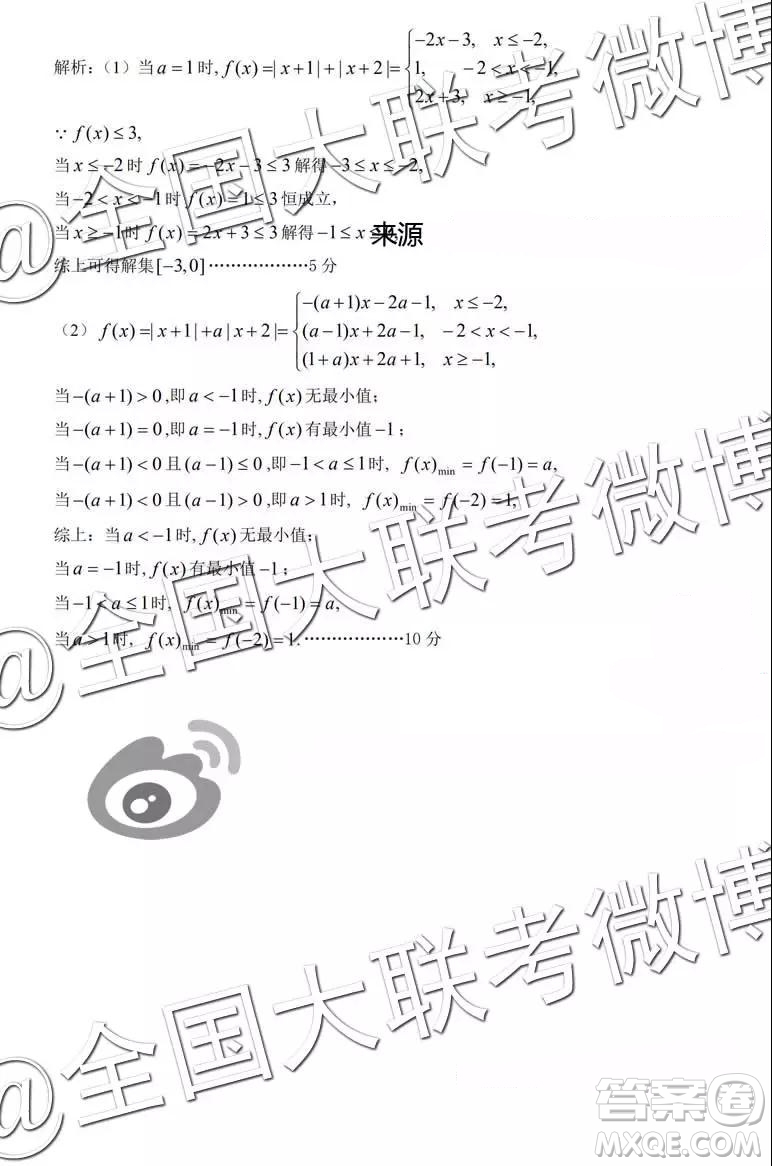 解析:(1)当a=1时, f(x)=|x+1|+|x+2|={-2x-3, x≤-2,
1, -2<x<-1,
2x+3, x≥-1,
∵ f(x)≤3,
当x≤-2时 f(x)=-2x-3≤3解得-3≤x≤-2,
当-2<x<-1时f(x)=1≤3恒成立,
当x≥-1时f(x)=2x+3≤3解得-1≤x≤
来源
综上可得解集[-3,0]………………5分
(2) f(x)=|x+1|+a|x+2|={-(a+1)x-2a-1, x≤-2,
(a-1)x+2a-1, -2<x<-1,
(1+a)x+2a+1, x≥-1,
当-(a+1)>0,即a<-1时, f(x)无最小值;
当-(a+1)=0,即a=-1时,f(x)有最小值-1;
当-(a+1)<0且(a-1)≤0,即-1<a≤1时, f(x)min=f(-1)=a,
当-(a+1)<0且(a-1)>0,即a>1时, f(x)min=f(-2)=1,
综上:当a<-1时,f(x)无最小值;
当a=-1时,f(x)有最小值-1;
当-1<a≤1时, f(x)min=f(-1)=a,
当a>1时, f(x)min=f(-2)=1.………………10分
@全国大联考微博
@全国大联考微博
@全国大联考微博
答案卷
MXQE.COM